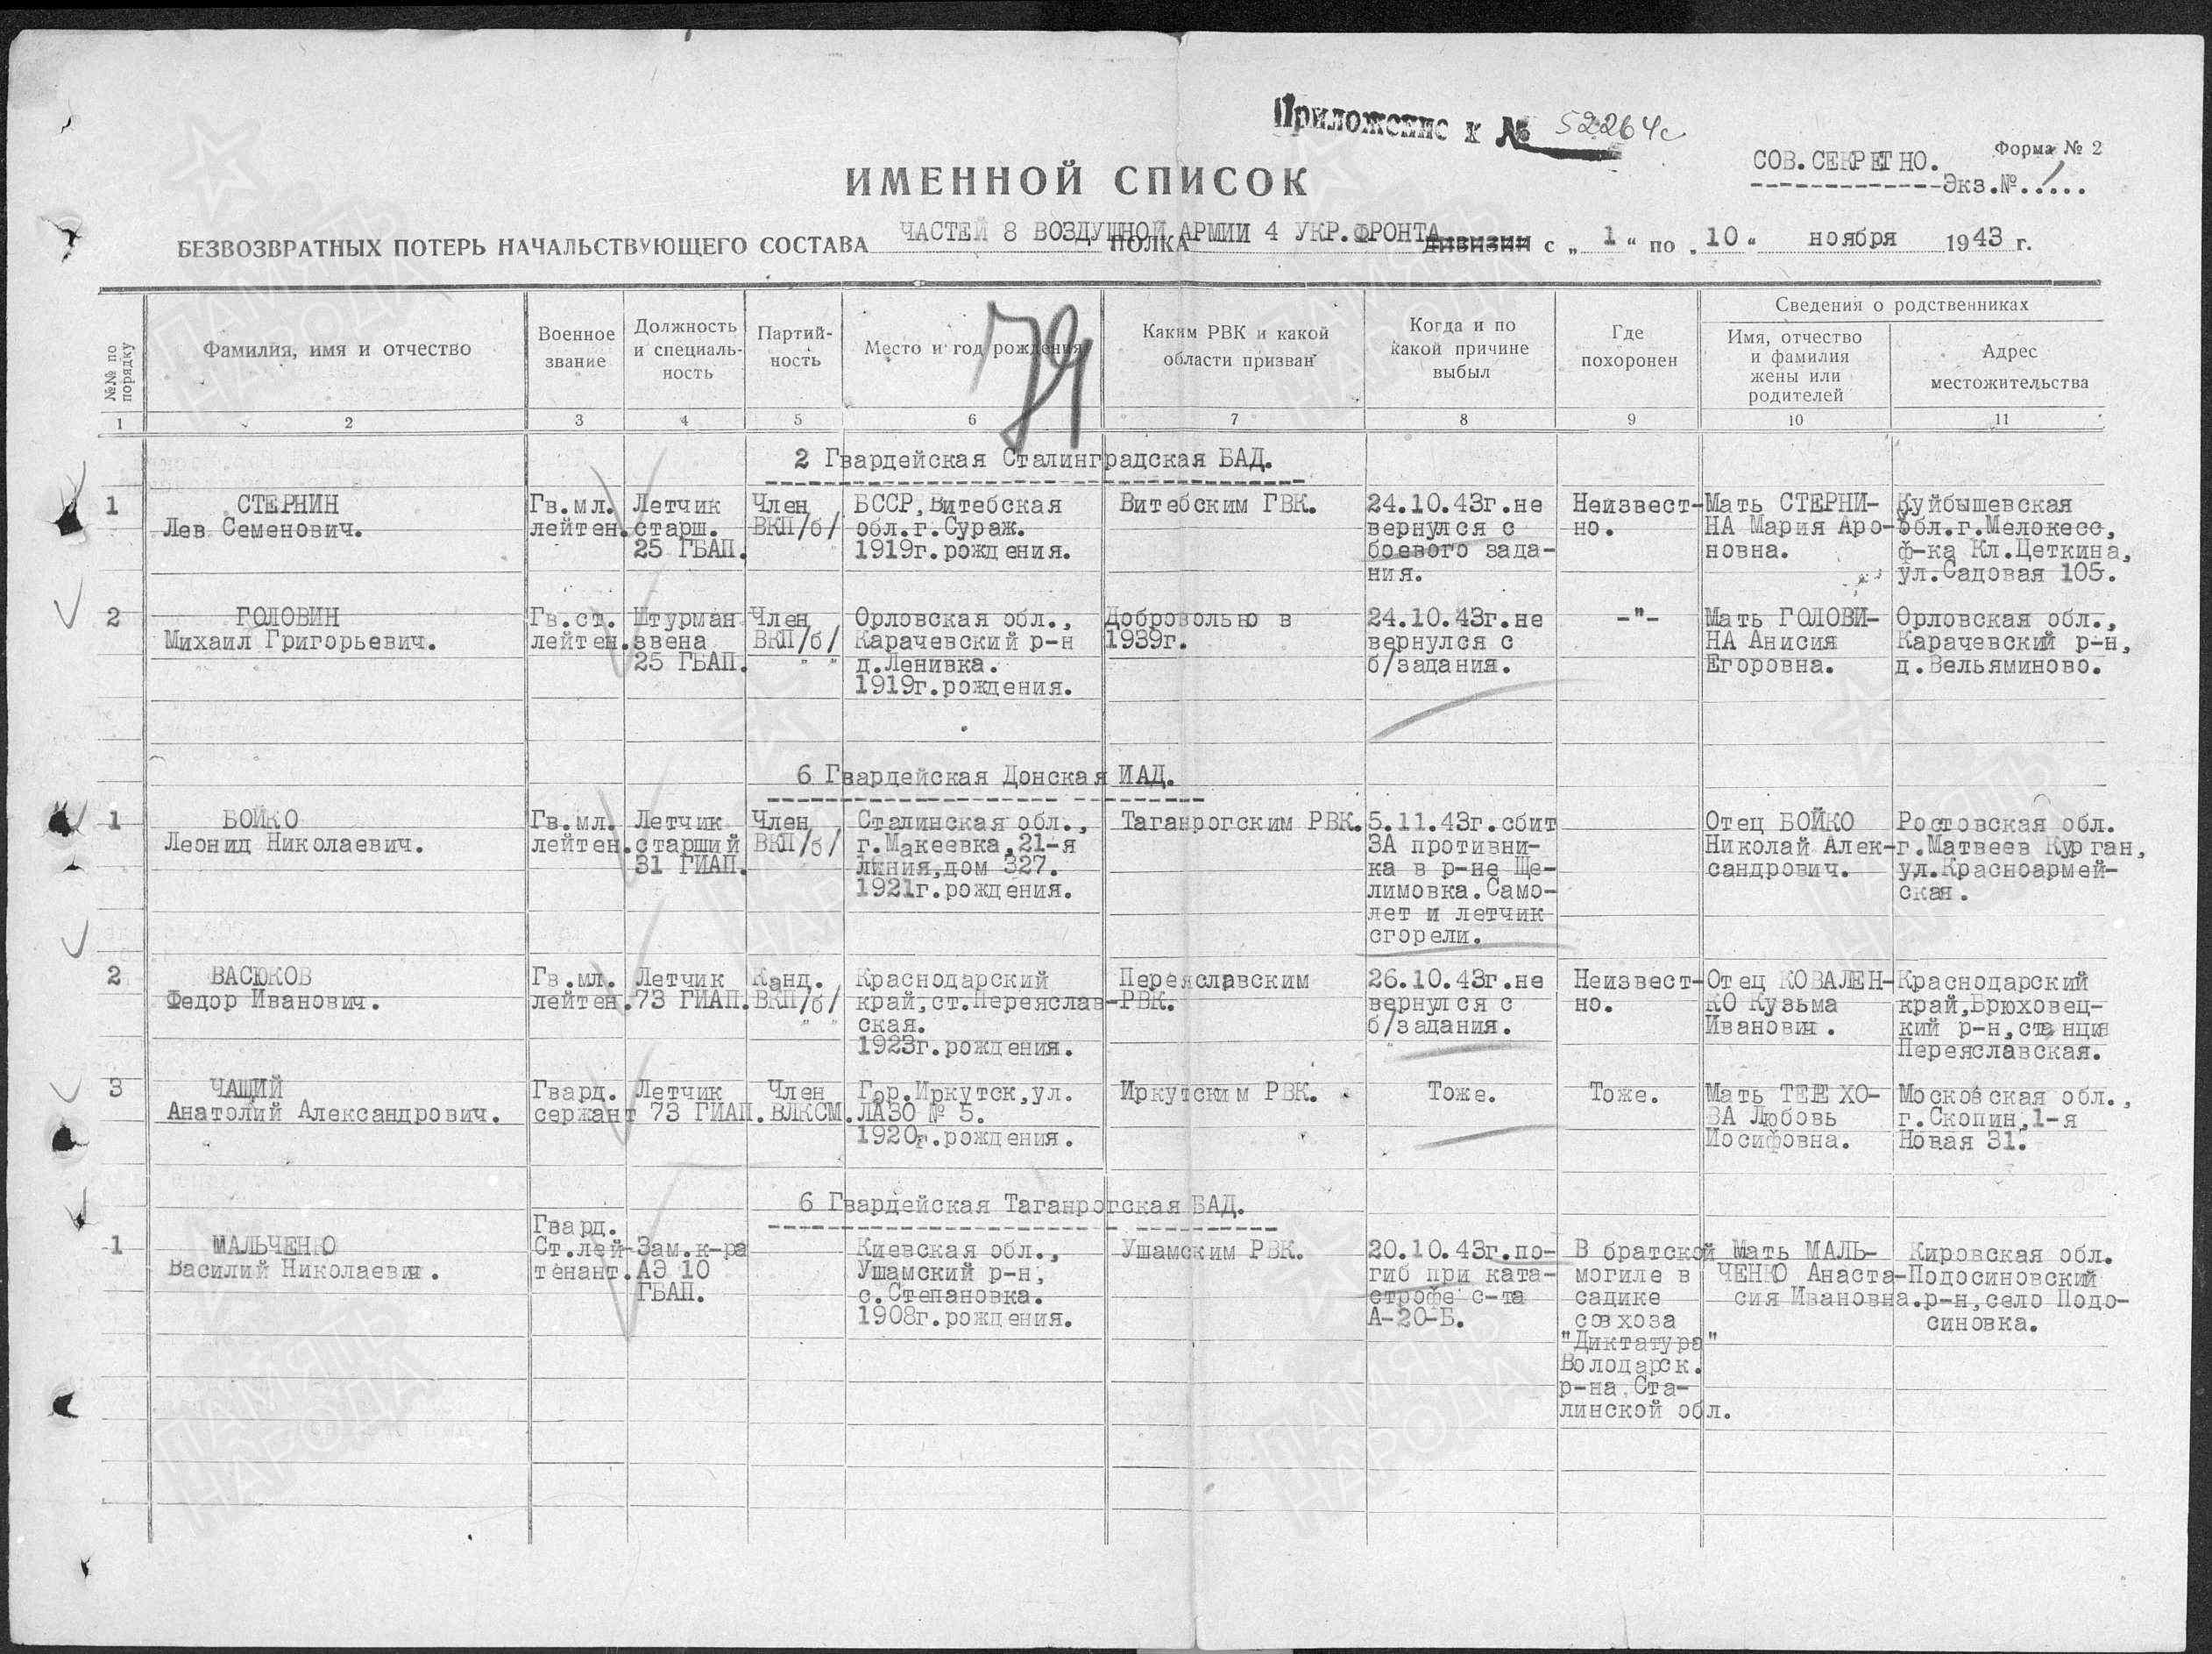 Приложение к № 52264с
СОВ.СЕКРЕТНО.
Форма № 2
Экз.№.1...
ИМЕННОЙ СПИСОК
БЕЗВОЗВРАТНЫХ ПОТЕРЬ НАЧАЛЬСТВУЮЩЕГО СОСТАВА ЧАСТЕЙ 8 ВОЗДУШНОЙ АРМИИ 4 УКР.ФРОНТА полка дивизии с „ 1 “ по „ 10 “ ноября 1943 г.
79
№№ по
порядку
Фамилия, имя и отчество
Военное
звание
Должность
и специаль-
ность
Партий-
ность
Место и год рождения
Каким РВК и какой
области призван
Когда и по
какой причине
выбыл
Где
похоронен
Сведения о родственниках
Имя, отчество
и фамилия
жены или
родителей
Адрес
местожительства
1 2 3 4 5 6 7 8 9 10 11
2 Гвардейская Сталинградская БАД.
1
СТЕРНИН
Лев Семенович.
Гв.мл.
лейтен.
Летчик
старш.
25 ГБАП.
Член
ВКП/б/
БССР, Витебская
обл.г.Сураж.
1919г.рождения.
Витебским ГВК.
24.10.43г.не
вернулся с
боевого зада-
ния.
Неизвест-
но.
Мать СТЕРНИ-
НА Мария Аро-
новна.
Куйбышевская
обл.г.Мелокесс,
ф-ка Кл.Цеткина,
ул.Садовая 105.
2
ГОЛОВИН
Михаил Григорьевич.
Гв.ст.
лейтен.
Штурман
звена
25 ГБАП.
Член
ВКП/б/
Орловская обл.,
Карачевский р-н
д.Ленивка.
1919г.рождения.
Добровольно в
1939г.
24.10.43г.не
вернулся с
б/задания.
-"-
Мать ГОЛОВИ-
НА Анисия
Егоровна.
Орловская обл.,
Карачевский р-н,
д.Вельяминово.
6 Гвардейская Донская ИАД.
1
БОЙКО
Леонид Николаевич.
Гв.мл.
лейтен.
Летчик
старший
31 ГИАП.
Член
ВКП/б/
Сталинская обл.,
г.Макеевка,21-я
линия,дом 327.
1921г.рождения.
Таганрогским РВК.
5.11.43г.сбит
ЗА противни-
ка в р-не Ще-
лимовка.Само-
лет и летчик
сгорели.
Отец БОЙКО
Николай Алек-
сандрович.
Ростовская обл.
г.Матвеев Курган,
ул.Красноармей-
ская.
2
ВАСЮКОВ
Федор Иванович.
Гв.мл.
лейтен.
Летчик
73 ГИАП.
Канд.
ВКП/б/
Краснодарский
край,ст.Переяслав-
ская.
1923г.рождения.
Переяславским
РВК.
26.10.43г.не
вернулся с
б/задания.
Неизвест-
но.
Отец КОВАЛЕН-
КО Кузьма
Иванович.
Краснодарский
край,Брюховец-
кий р-н,станция
Переяславская.
3
ЧАЩИЙ
Анатолий Александрович.
Гвард.
сержант
Летчик
73 ГИАП.
Член
ВЛКСМ.
Гор.Иркутск,ул.
ЛАЗО № 5.
1920г.рождения.
Иркутским РВК.
Тоже.
Тоже.
Мать ТЕРЕХО-
ВА Любовь
Иосифовна.
Московская обл.,
г.Скопин,1-я
Новая 31.
6 Гвардейская Таганрогская БАД.
1
МАЛЬЧЕНКО
Василий Николаевич.
Гвард.
Ст.лей-
тенант.
Зам.к-ра
АЭ 10
ГБАП.
Киевская обл.,
Ушамский р-н,
с.Степановка.
1908г.рождения.
Ушамским РВК.
20.10.43г.по-
гиб при ката-
строфе с-та
А-20-Б.
В братской
могиле в
садике
совхоза
"Диктатура"
Володарск.
р-на,Ста-
линской обл.
Мать МАЛЬ-
ЧЕНКО Анаста-
сия Ивановна.
Кировская обл.
Подосиновский
р-н,село Подо-
синовка.